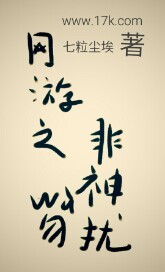 www.17k.com
七粒尘埃 著
网游之
非神
勿扰